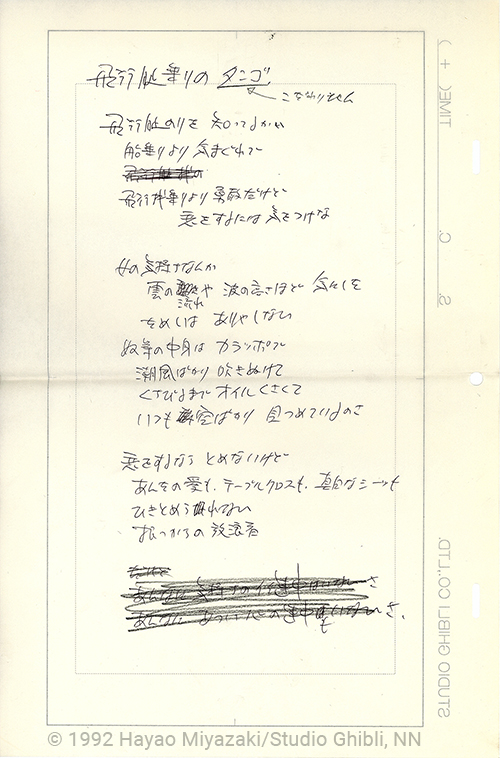 飛行艇乗りのタンゴ
こだわりません
飛行艇のりを 知ってるかい
船乗りより 気まぐれで
飛行機乗りより 勇敢だけど
恋をするには 気をつけな
女の気持ちなんか
雲の や 波の高さほど 気にしを
流れ
ありゃしない
奴等の中身は カラッポで
潮風ばかり 吹きぬけて
くさびまで オイルくさくて
いつも 空ばかり 見つめているのさ
恋をするなら とめないけど
あんたの愛も、テーブルクロスも、真白なシーツも
ひきとめらればしない
根っからの 放浪者
TIME( + )
C
S
STUDIO GHIBLI CO.,LTD.
© 1992 Hayao Miyazaki/Studio Ghibli, NN